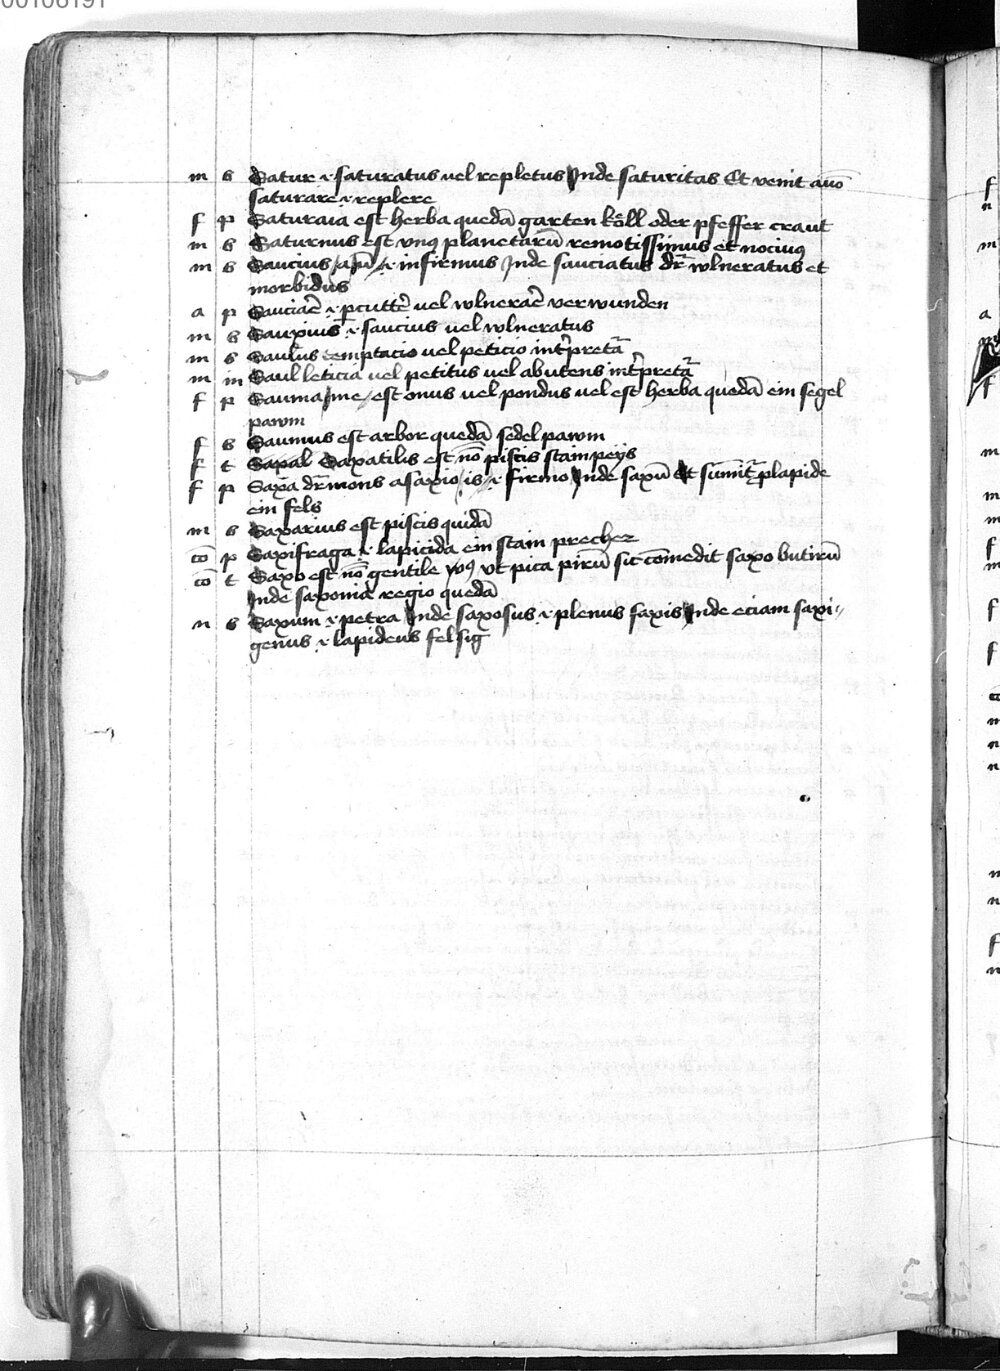 00106191
m s Satur .i. saturatus uel repletus Inde saturitas Et venit
saturare .i. replere
f p Saturaia est herba quedā garten köll oder pfeffer craut
m s Saturnus est vnꝰ planetarū remotissimus et nociuꝰ
m s Saucius .i. infirmus Inde sauciatus dr̄ wlneratus et
morbidus
a p Sauciar̄e .i. ꝑcutter̄ uel wlnerar̄e verwunden
m s Sauxius .i. saucius uel wlneratus
m s Saulus temptacio uel peticio int̄pretā
m in Saul leticia uel petitus uel abutens int̄pretā
f p Sauma /me/ est onus uel pondus uel est herba quedā ein segel
pawm
f s Saumus est arbor quedā sedel pawm
f t Saxal Saxatilis est nō piscis stain peys
f p Saxa dr̄ mons a saxio is .i. firmo Inde saxū Et sūmit̄ ꝓ lapide
ein fels
m s Saxarius est piscis quidā
cō p Saxifraga .i. lapicida ein stain precher
cō t Saxo est nō gentile vꝰ ut pica pirū sic cōmedit saxo butirū
Inde saxonia regio quedā
n s Saxum .i. petra Inde saxosus .i. plenus saxis Inde eciam saxi-
genus .i. lapideus felsig